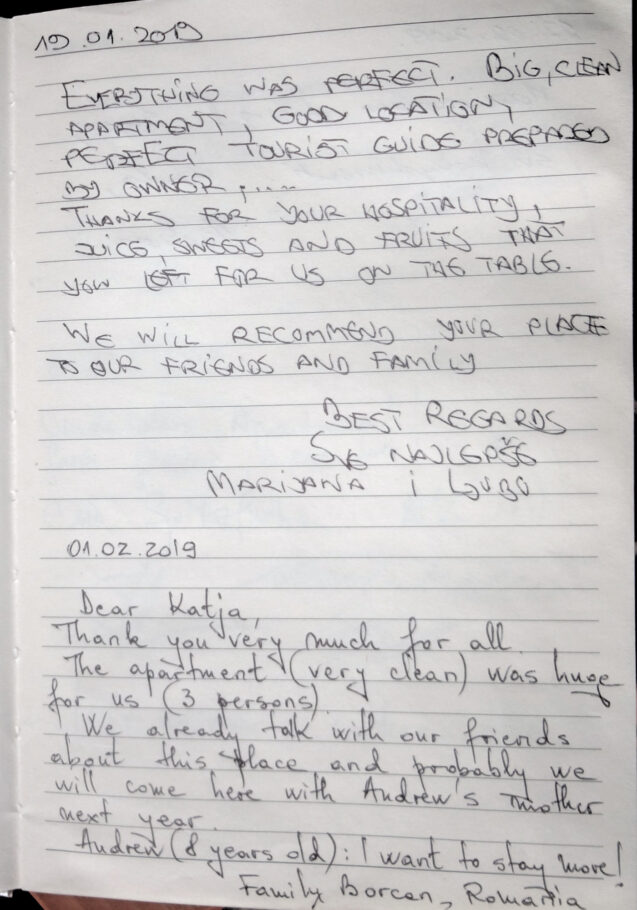 19.01.2019
EVERYTHING WAS PERFECT. BIG, CLEAN
APARTMENT, GOOD LOCATION,
PERFECT TOURIST GUIDE PREPARED
BY OWNER,.....
THANKS FOR YOUR HOSPITALITY,
JUICE, SWEETS AND FRUITS THAT
YOU LEFT FOR US ON THE TABLE.
WE WILL RECOMMEND YOUR PLACE
TO OUR FRIENDS AND FAMILY
BEST REGARDS
SVE NAJLEPŠE
MARIJANA i LJUBO
01.02.2019
Dear Katja,
Thank you very much for all.
The apartment (very clean) was huge
for us (3 persons)
We already talk with our friends
about this place and probably we
will come here with Andrew's mother
next year.
Andrew (8 years old): I want to stay more!
Family Borcan, Romania